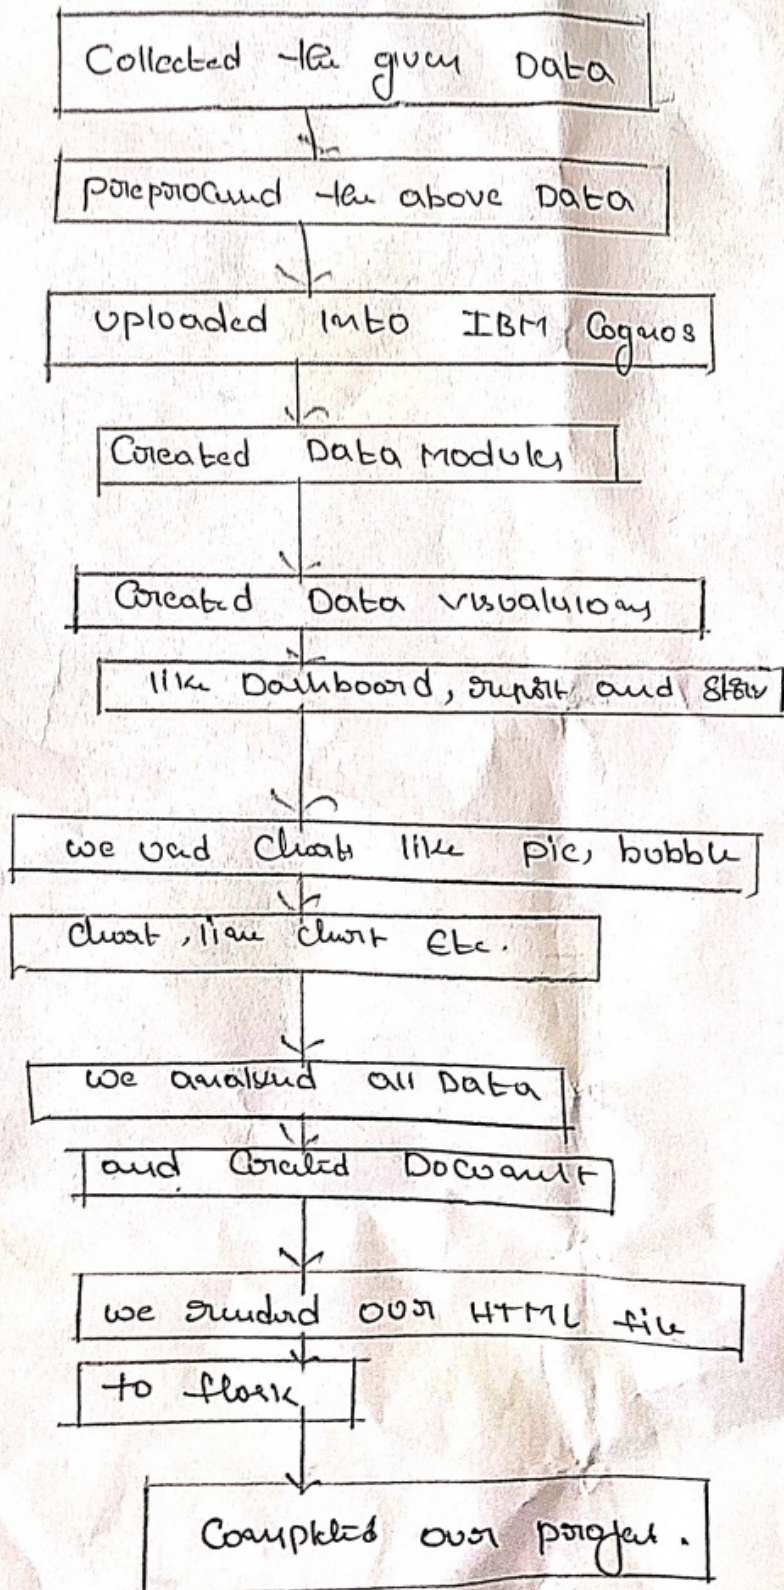 Collected the given Data
preprocessed the above Data
uploaded into IBM Cognos
Created Data Modules
Created Data visualuions
like Dashboard, report and Story
we used Charts like pie, bubble
chart, line chart Etc.
we analysed all Data
and Created Document
we rendered our HTML file
to flask
Completed our project.